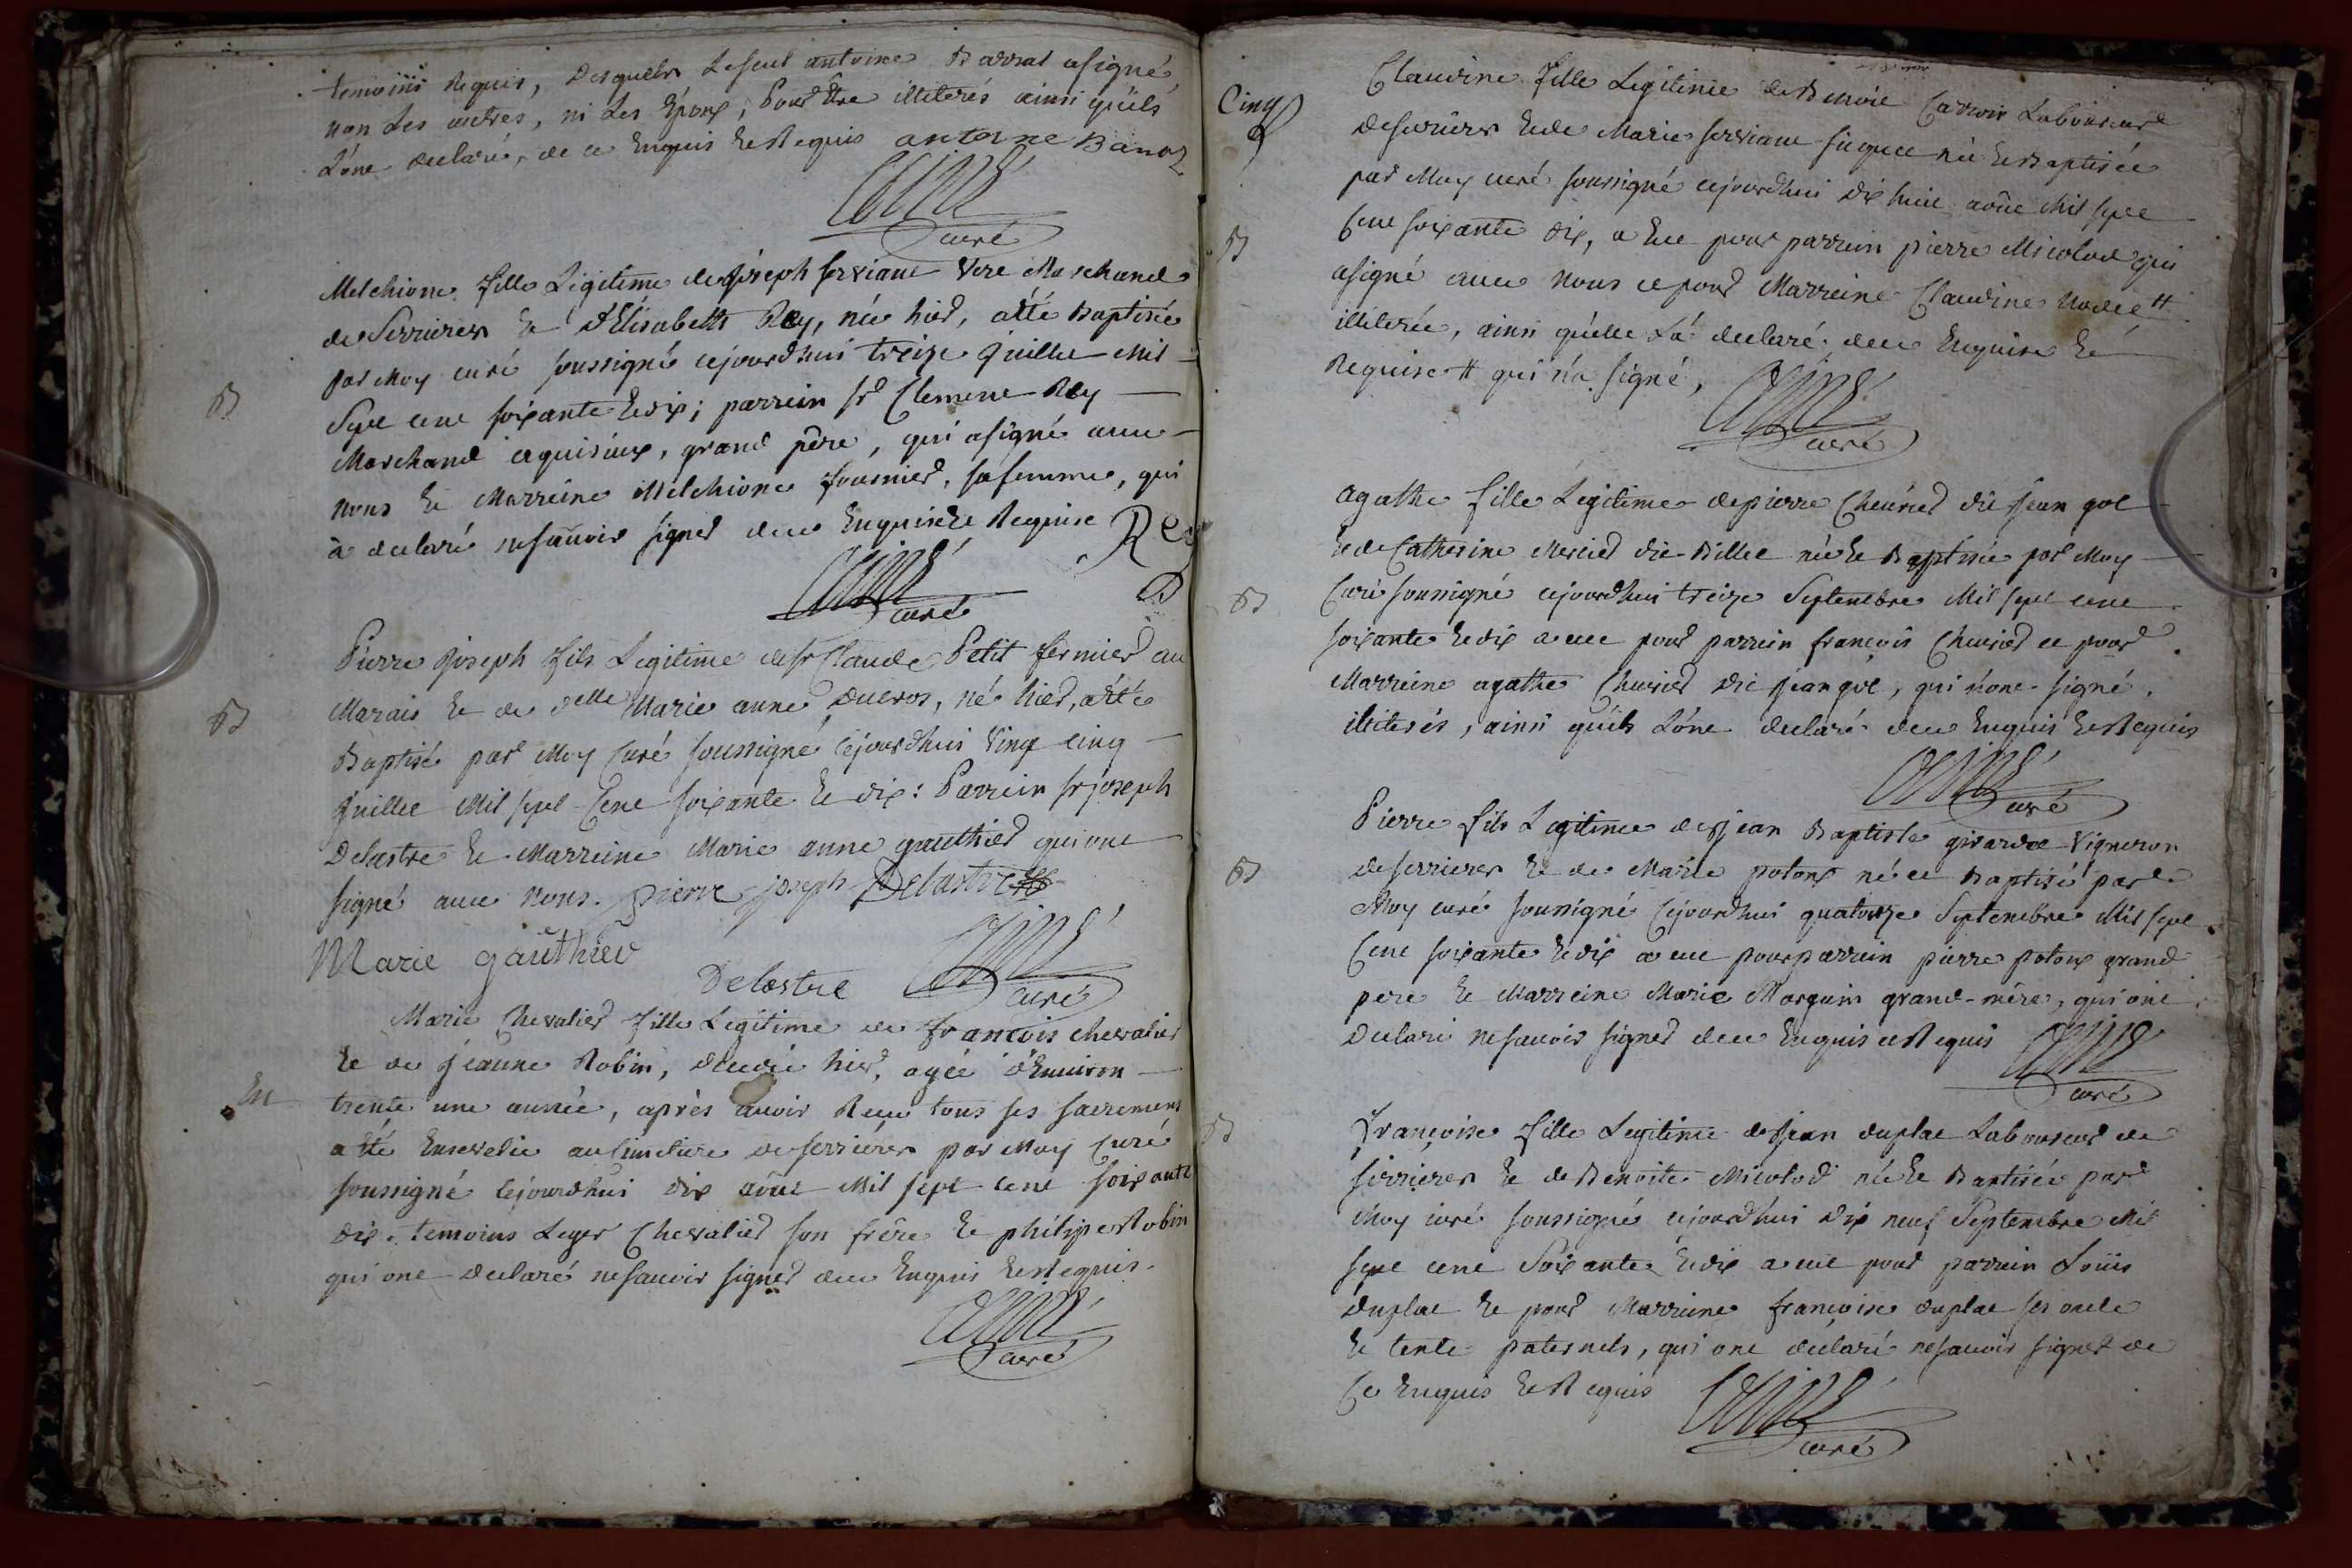 temoins Requis, Desquels Le seul antoine Barrat a signé,
non Les autres, ni Les Epoux, Pour Etre illiterés ainsi quils
L'ont declaré, de ce Enquis Et Requis antoine Barraz
curé
Melchione fille Legitime de joseph serviant Vere Marchand
de Serrieres Et d'Elisabeth Rey, née hier, a été Baptisée
par Moy curé soussigné cejourdhui treize juillet Mil
Sept cent soixante Et dix; parrein sr Clement Rey
Marchand a quirieux, grand père, qui a signé avec
nous Et Marreine Melchione fournier, sa femme, qui
à declaré ne sauoir signer de ce Enquise Et Requise Rey
curé
B
Pierre joseph fils Legitime de sr Claude Petit fermier au
Marais Et de delle Marie anne Ducros, né hier, a été
Baptisé par Moy Curé soussigné cejourdhui Vingt cinq
juillet Mil sept Cent soixante Et dix: Parrein sr joseph
Delastre Et Marreine Marie anne gauthier qui ont
signé avec Nous. pierre joseph Delastre
B
Marie gauthier
Delastre
curé
Marie Chevalier fille Legitime de francois chevalier
Et de jeanne Robin, decedée hier, agée d'Environ
En
trente une année, après auoir Recu tous ses sacremens
a été Ensevelie au Simetiere de serrieres par Moy Curé
soussigné cejourdhui dix août Mil sept cent soixante
dix. temoins Leger Chevalier son frère Et philipe Robin
qui ont declaré ne sauoir signer de ce Enquis Et Requis.
curé
Cinq
Claudine fille Legitime de Benoit Carroin Laboureur
de serrieres Et de Marie serviant née Et Baptisée
par Moy curé soussigné cejourdhui dix huit août Mil sept
B
Cent soixante dix, a Eut pour parrein pierre Micolod qui
a signé avec nous et pour Marreine Claudine Nodet #
illiterée, ainsi qu'elle L'a declaré de ce Enquise Et
Requise # qui n'a signé,
curé
agathe fille Legitime de pierre Cheurier dit jean got
Et de Catherine Mercier dit Billet née Et Baptisée par Moy
B
Curé soussigné cejourdhui treize Septembre Mil sept cent
soixante Et dix a eut pour parrein françois Cheurier et pour
Marreine agathe Cheurier dit jean got, qui n'ont signé,
illiterés, ainsi quils L'ont declaré de ce Enquis Et Requis
curé
Pierre fils Legitime de jean Baptiste girardot Vigneron
B
de serrieres Et de Marie poloux né et Baptisé par
Moy curé soussigné Cejourdhui quatorze Septembre Mil sept
Cent soixante Et dix a eut pour parrein pierre poloux grand
pere Et Marreine Marie Morguin grand-mère, qui ont
Declaré ne sauoir signer de ce Enquis et Requis
curé
B
françoise fille Legitime de jean duplat Laboureur de
serrieres Et de Benoite Micolod née Et Baptisée par
Moy curé soussigné cejourdhui dix neuf Septembre Mil
sept cent Soixante Et dix a eut pour parrein Loüis
duplat Et pour Marreine françoise duplat ses oncle
Et tente paternels, qui ont declaré ne sauoir signer de
Ce Enquis Et Requis
curé